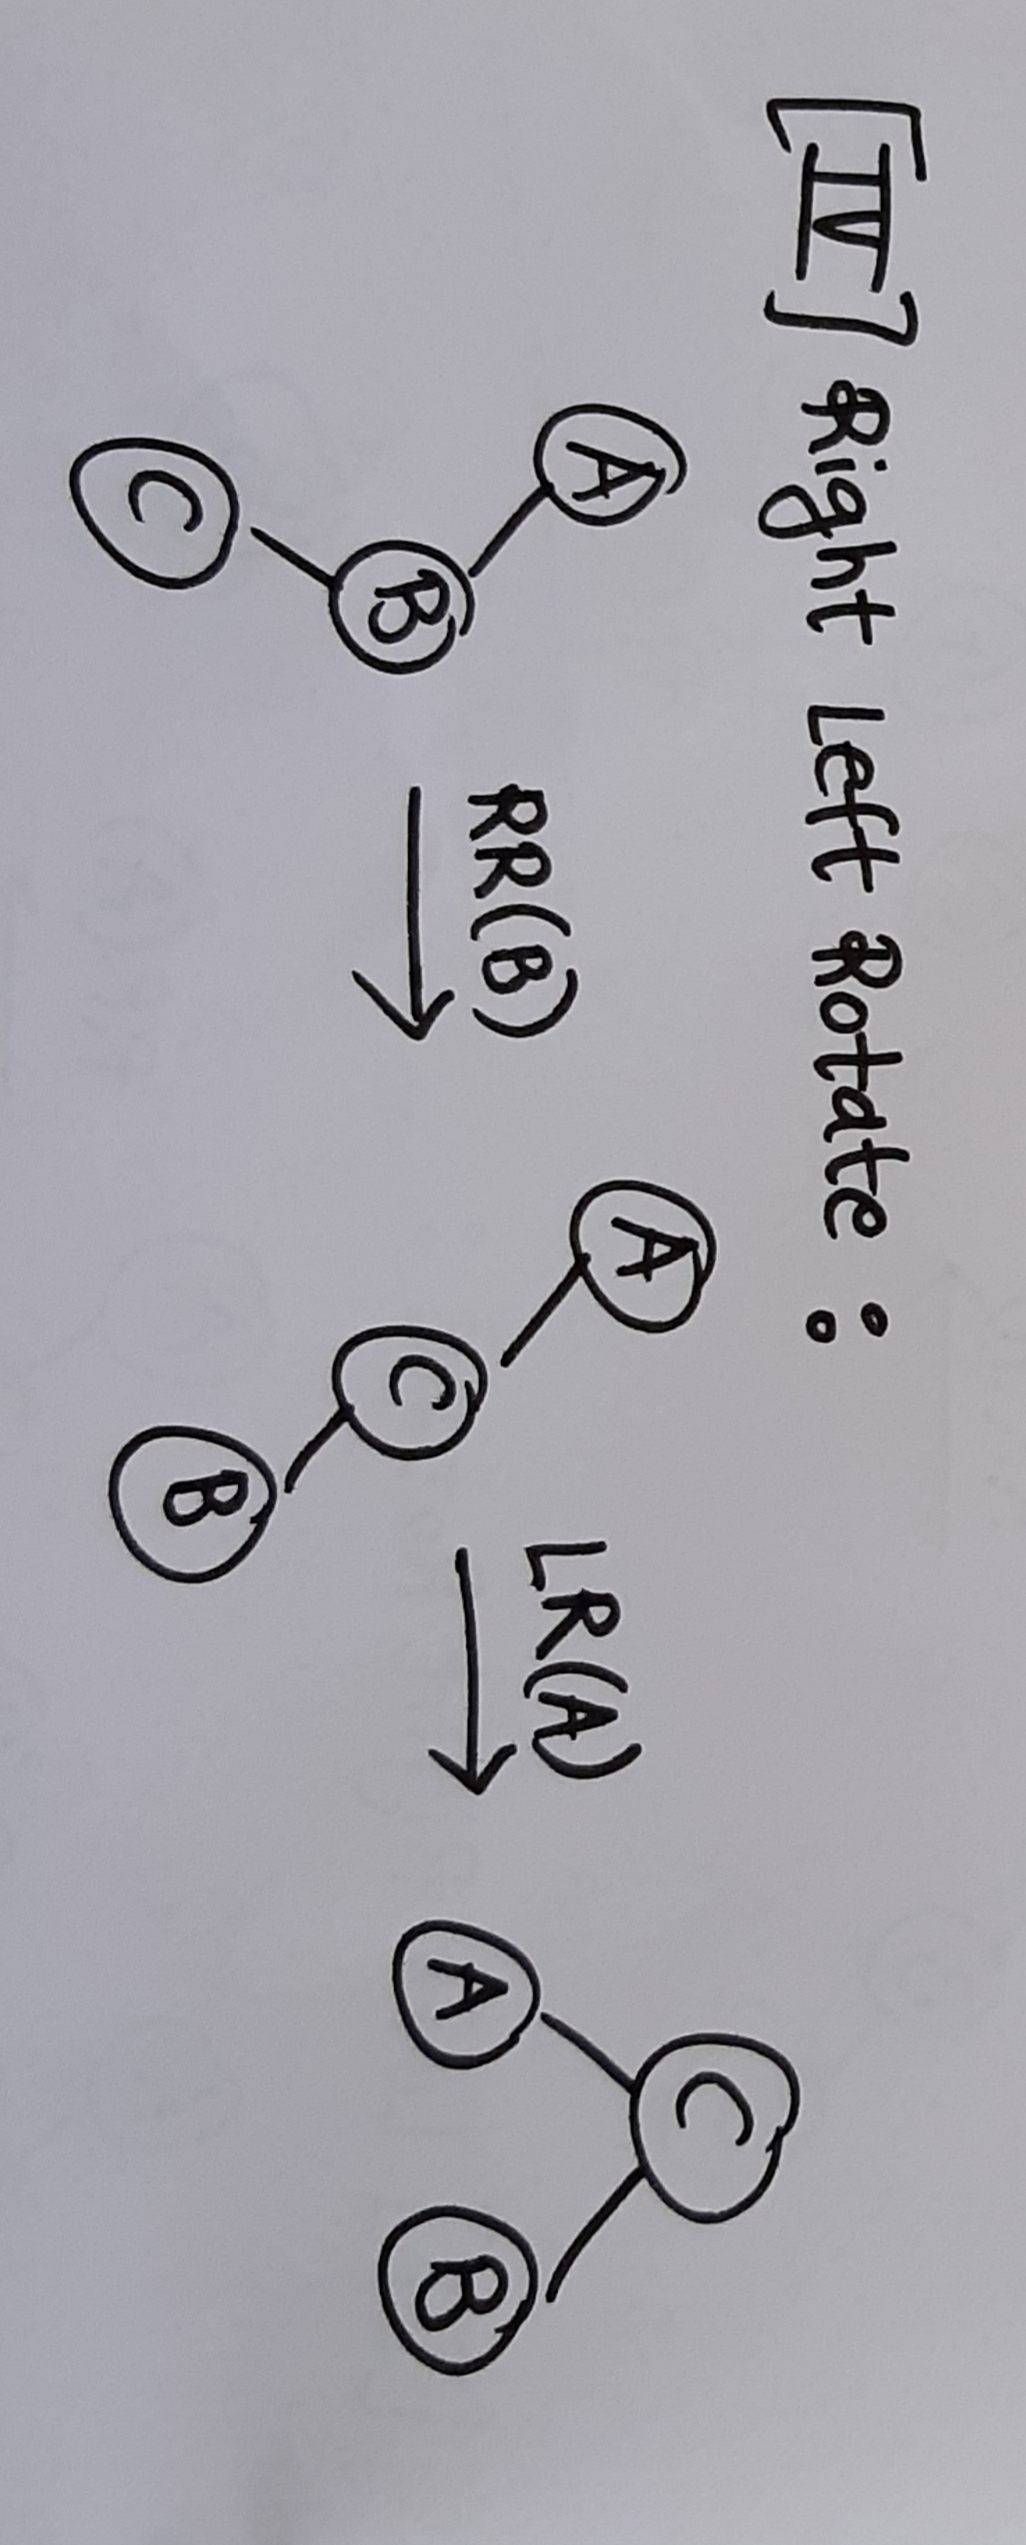 [IV] Right Left Rotate :
A
B
C
RR(B)
A
C
B
LR(A)
C
A B